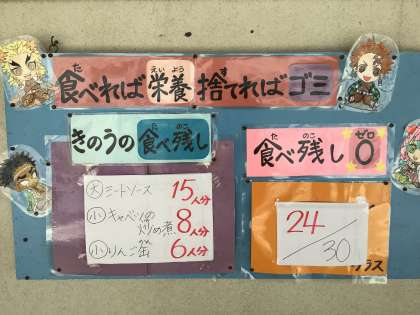 食べれば栄養捨てればゴミ
きのうの食べ残し
大 ミートソース 15人分
小 キャベツの炒め煮 8人分
小 りんご缶 6人分
食べ残し0
24/30
クラス